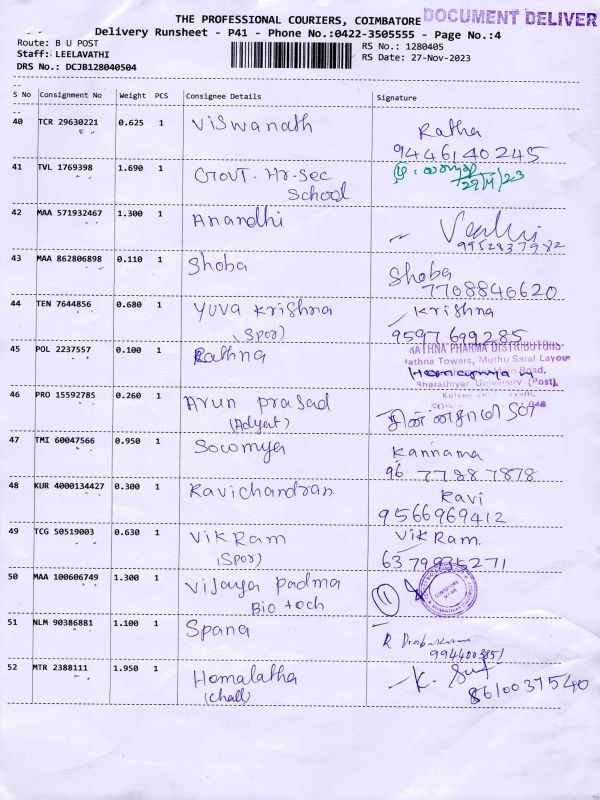 THE PROFESSIONAL COURIERS, COIMBATORE
DOCUMENT DELIVER
Delivery Runsheet - P41 - Phone No.:0422-3505555 - Page No.:4
Route: B U POST
RS No.: 1280405
Staff: LEELAVATHI
RS Date: 27-Nov-2023
DRS No.: DCJB128040504
S No Consignment No Weight PCS Consignee Details Signature
40 TCR 29630221 0.625 1 Viswanath Ratha
9446140245
41 TVL 1769398 1.690 1 Govt. Hr-Sec
School
42 MAA 571932467 1.300 1 Anandhi
9952837982
43 MAA 862806898 0.110 1 Shoba Shoba
7708840620
44 TEN 7644856 0.680 1 Yuva Krishna Krishna
(Spor) 9597699285
45 POL 2237557 0.100 1 Rathna RATHNA PHARMA DISTRIBUTORS
Rathna Towers, Muthu Saral Layout
Main Road,
Bharathiyar University (Post),
46 PRO 15592785 0.260 1 Arun prasad
(Adyart)
47 TMI 60047566 0.950 1 Sowmya Kannama
96 77887878
48 KUR 4000134427 0.300 1 Ravichandran Ravi
9566969412
49 TCG 50519003 0.630 1 VikRam VikRam.
(Spor) 6379935271
50 MAA 100606749 1.300 1 Vijaya padma
Bio tech
51 NLM 90386881 1.100 1 Spana
52 MTR 2388111 1.950 1 Homalatha K.
(chall) 8610037540